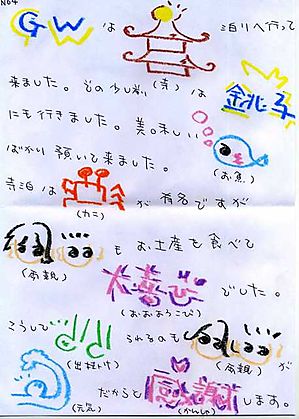 No4
GW は 泊りへ行って
来ました。その少し前 (寺) は 銚子
にも行きました。美味しい
(お魚)
ばかり頂いて来ました。
寺泊は (カニ) が有名ですが
(両親) も お土産を食べて
大喜び でした。
(おおよろこび)
こうして (出掛け) られるのも (両親) が
(元気) だからと 感謝 します。
(かんしゃ)